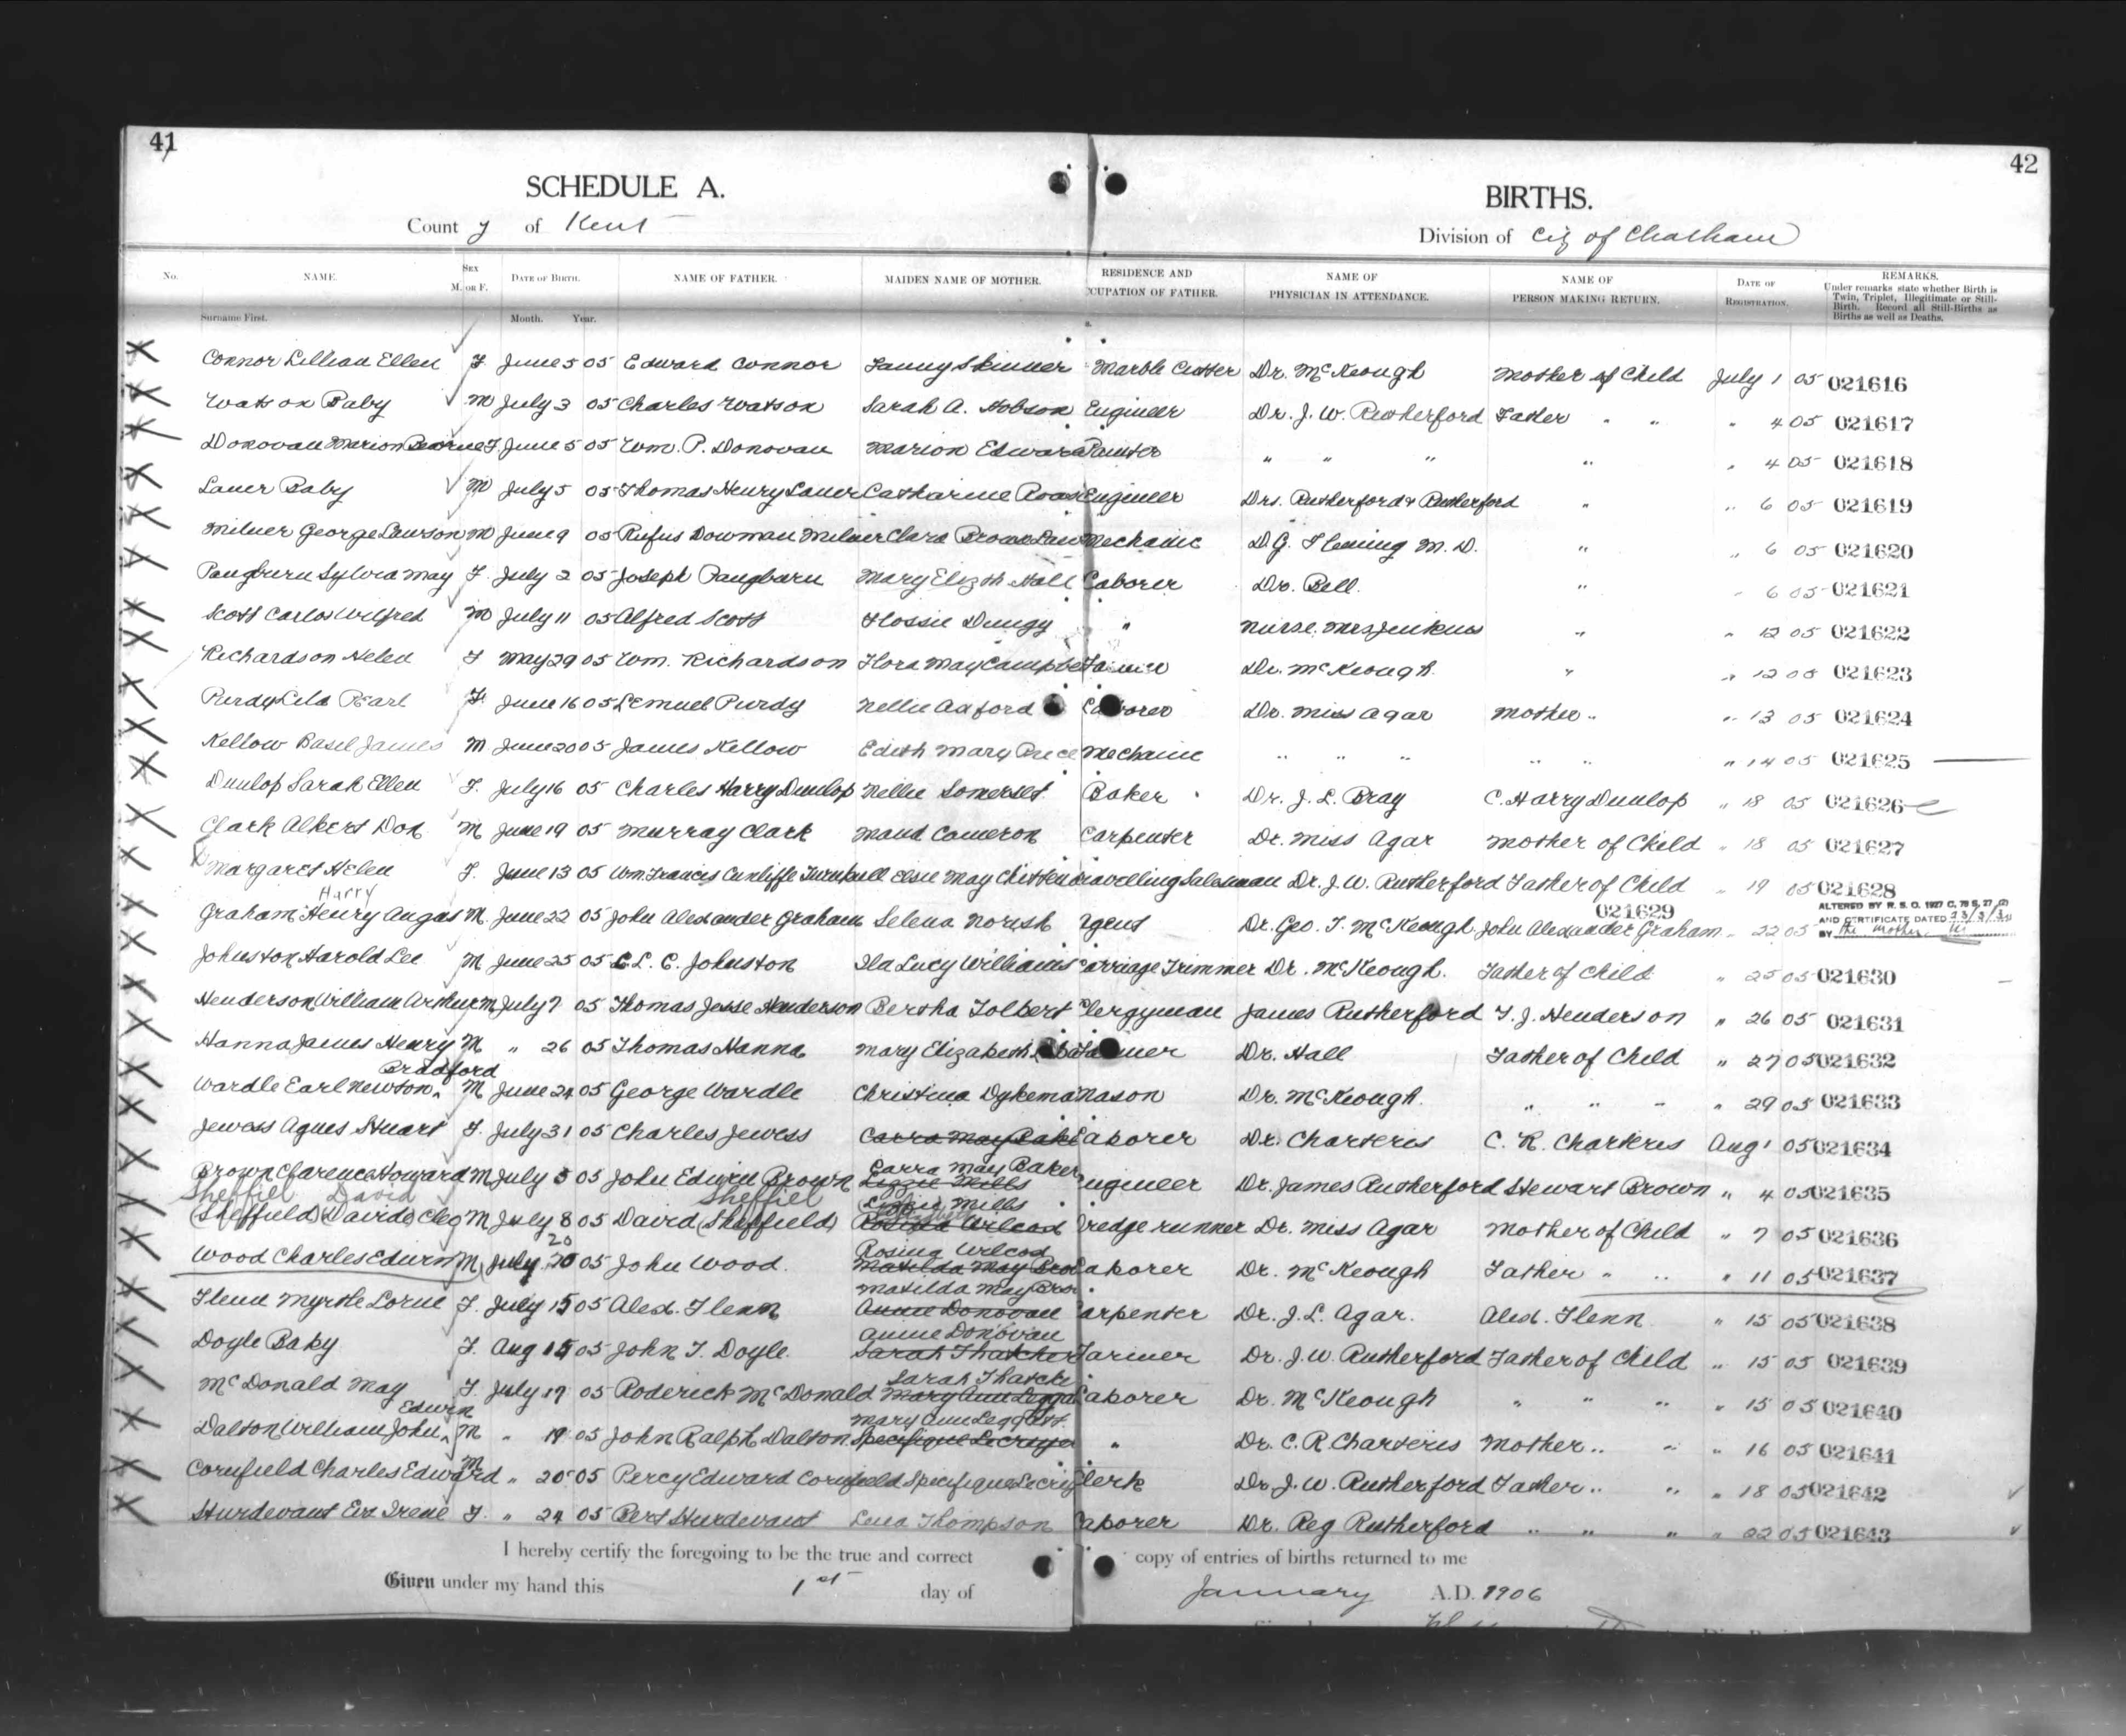 41
42
SCHEDULE A.
BIRTHS.
County of Kent
Division of City of Chatham
No. NAME. SEX M. OR F. DATE OF BIRTH. NAME OF FATHER. MAIDEN NAME OF MOTHER. RESIDENCE AND OCCUPATION OF FATHER. NAME OF PHYSICIAN IN ATTENDANCE. NAME OF PERSON MAKING RETURN. DATE OF REGISTRATION. REMARKS.
Under remarks state whether Birth is Twin, Triplet, Illegitimate or Still-Birth. Record all Still-Births as Births as well as Deaths.
Surname First. Month. Year.
Connor Lillian Ellen F June 5 05 Edward Connor Fanny Skinner Marble Cutter Dr. McKeough Mother of Child July 1 05 021616
Watson Baby M July 3 05 Charles Watson Sarah A. Hobson Engineer Dr. J. W. Rutherford Father " " " 4 05 021617
Donovan Marion F. June 5 05 Wm. P. Donovan Marion Edward Painter " " " " " 4 05 021618
Lauer Baby M July 5 05 Thomas Henry Lauer Catharine Engineer Drs. Rutherford & Rutherford " " 6 05 021619
Milner George Lawson M June 9 05 Rufus Dowman Milner Clara Mechanic D. G. Fleming M. D. " " 6 05 021620
Pangburn Sylvia May F. July 2 05 Joseph Pangburn Mary Elizth Hall Laborer Dr. Bell. " " 6 05 021621
Scott Carlos Wilfred M July 11 05 Alfred Scott Flossie Dungy " Nurse Mrs Jenkins " " 12 05 021622
Richardson Helen F May 29 05 Wm. Richardson Flora May Campbe Farmer Dr. McKeough " " 12 05 021623
Purdy Lila Pearl F June 16 05 Lemuel Purdy Nellie Axford Laborer Dr. Miss Agar Mother " " 13 05 021624
Kellow Basil James M June 20 05 James Kellow Edith Mary Price Mechanic " " " " " " 14 05 021625
Dunlop Sarah Ellen F. July 16 05 Charles Harry Dunlop Nellie Somerset Baker Dr. J. L. Bray C. Harry Dunlop " 18 05 021626
Clark Albert Don M June 19 05 Murray Clark Maud Cameron Carpenter Dr. Miss Agar Mother of Child " 18 05 021627
Margaret Helen F. June 13 05 Wm Francis Cunliffe Turnbull Elsie May Travelling Salesman Dr. J. W. Rutherford Father of Child " 19 05 021628
Harry
021629
Graham Henry Angus M June 22 05 John Alexander Graham Selena Norish Agent Dr. Geo. T. McKeough John Alexander Graham " 22 05 ALTERED BY R. S. O. 1927 C. 78 S. 27 (2) AND CERTIFICATE DATED BY the mother
Johnston Harold Lee M June 25 05 L. C. Johnston Ila Lucy Williams Carriage Trimmer Dr. McKeough. Father of Child " 25 05 021630
Henderson William Arthur M July 7 05 Thomas Jesse Henderson Bertha Tolbert Clergyman James Rutherford T. J. Henderson " 26 05 021631
Hanna James Henry M " 26 05 Thomas Hanna Mary Elizabeth Farmer Dr. Hall Father of Child " 27 05 021632
Bradford
Wardle Earl Newton M June 24 05 George Wardle Christina Dykema Mason Dr. McKeough. " " " " 29 05 021633
Jewess Agnes Stuart F. July 31 05 Charles Jewess Carra May Bake Laborer Dr. Charteris C. R. Charteris Aug 1 05 021634
Carra May Baker
Brown Clarence Howard M July 5 05 John Edwin Brown Lizzie Mills Engineer Dr. James Rutherford Stewart Brown " 4 05 021635
Sheffiel David Sheffiel Lizzie Mills
(Sheffield) David Cleo M July 8 05 David (Sheffield) Rosina Wilcox Dredge runner Dr. Miss Agar Mother of Child " 7 05 021636
20 Rosina Wilcox
Wood Charles Edwin M July 20 05 John Wood. Matilda May Laborer Dr. McKeough Father " " " 11 05 021637
Matilda May
Flenn Myrtle Lorne F. July 15 05 Alex. Flenn Annie Donovan Carpenter Dr. J. L. Agar. Alex. Flenn " 15 05 021638
Annie Donovan
Doyle Baby F. Aug 15 05 John T. Doyle Sarah Thatcher Farmer Dr. J. W. Rutherford Father of Child " 15 05 021639
Sarah Thatche
McDonald May F July 19 05 Roderick McDonald Mary Ann Leggat Laborer Dr. McKeough " " " " 15 05 021640
Edwin Mary Ann Leggatt
Dalton William John M " 19 05 John Ralph Dalton " Dr. C. R. Charteris Mother " " " 16 05 021641
Cornfield Charles Edward M " 20 05 Percy Edward Cornfield Clerk Dr. J. W. Rutherford Father " " " 18 05 021642
Sturdevant Eva Irene F. " 24 05 Bert Sturdevant Lena Thompson Laborer Dr. Reg Rutherford " " " " 22 05 021643
I hereby certify the foregoing to be the true and correct copy of entries of births returned to me
Given under my hand this 1st day of January A.D. 1906